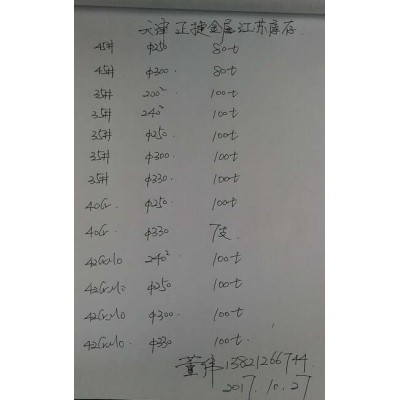 天津正捷金属江苏库存
45# φ250 80t
45# φ300. 80t
35# 200² 100t
35# 240² 100t
35# φ250 100t
35# φ300. 100t
35# φ330. 100t
40Cr. φ250 100t
40Cr. φ330 7支.
42CrMo 240² 100t
42CrMo φ250 100t
42CrMo φ300. 100t
42CrMo φ330 100t.
董伟 13821266744
2017.10.27